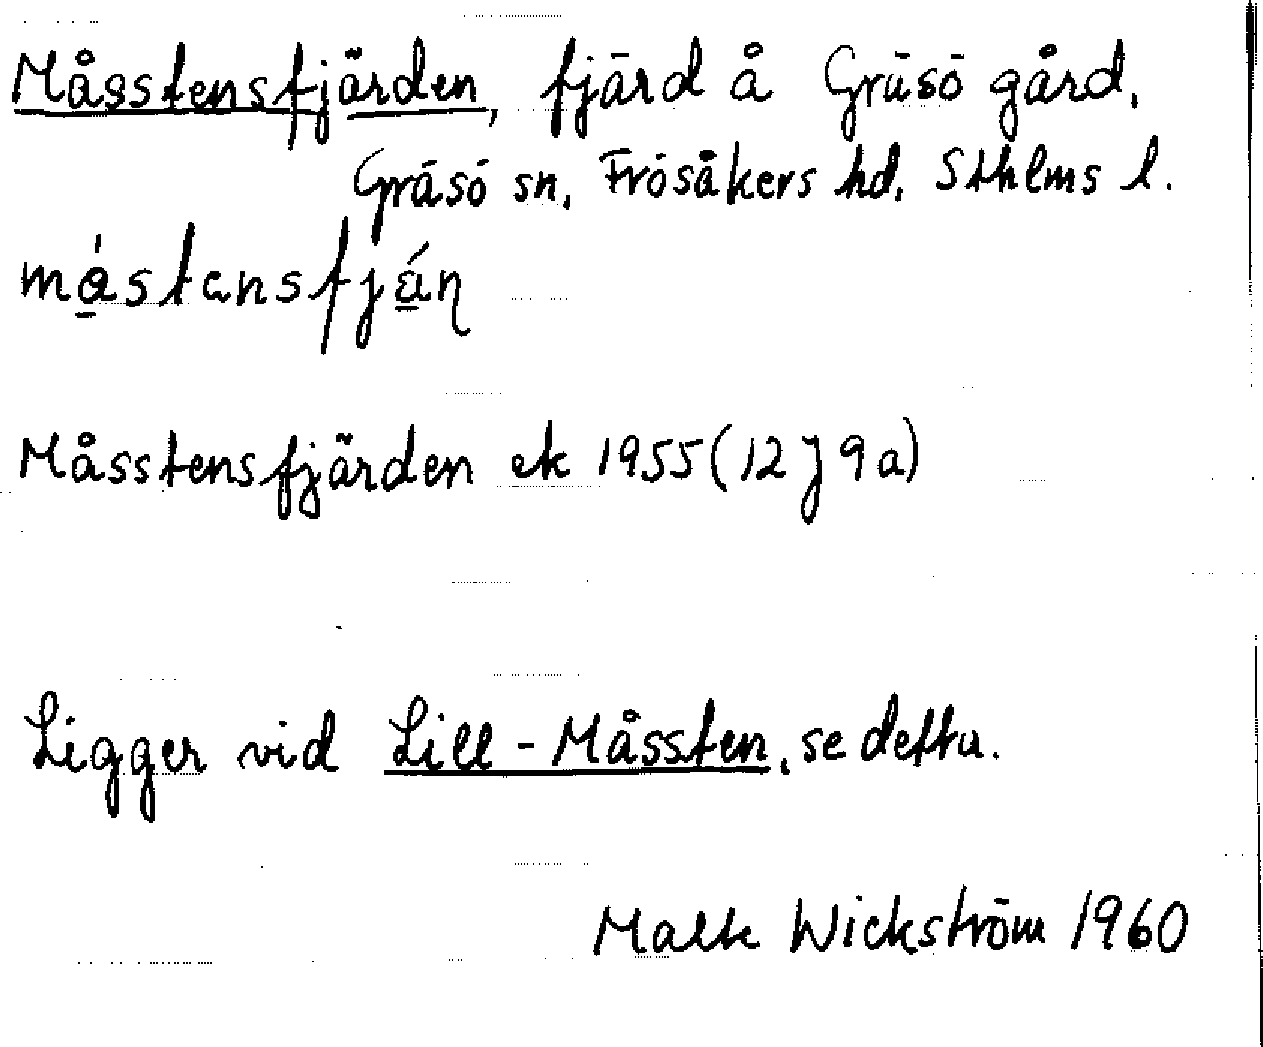 Måsstensfjärden, fjärd å Gräsö gård,
Gräsö sn, Frösåkers hd, Sthlms l.
Måsstensfjärden ek 1955 (12 J 9 a)
Ligger vid Lill-Måssten, se detta.
Malte Wickström 1960